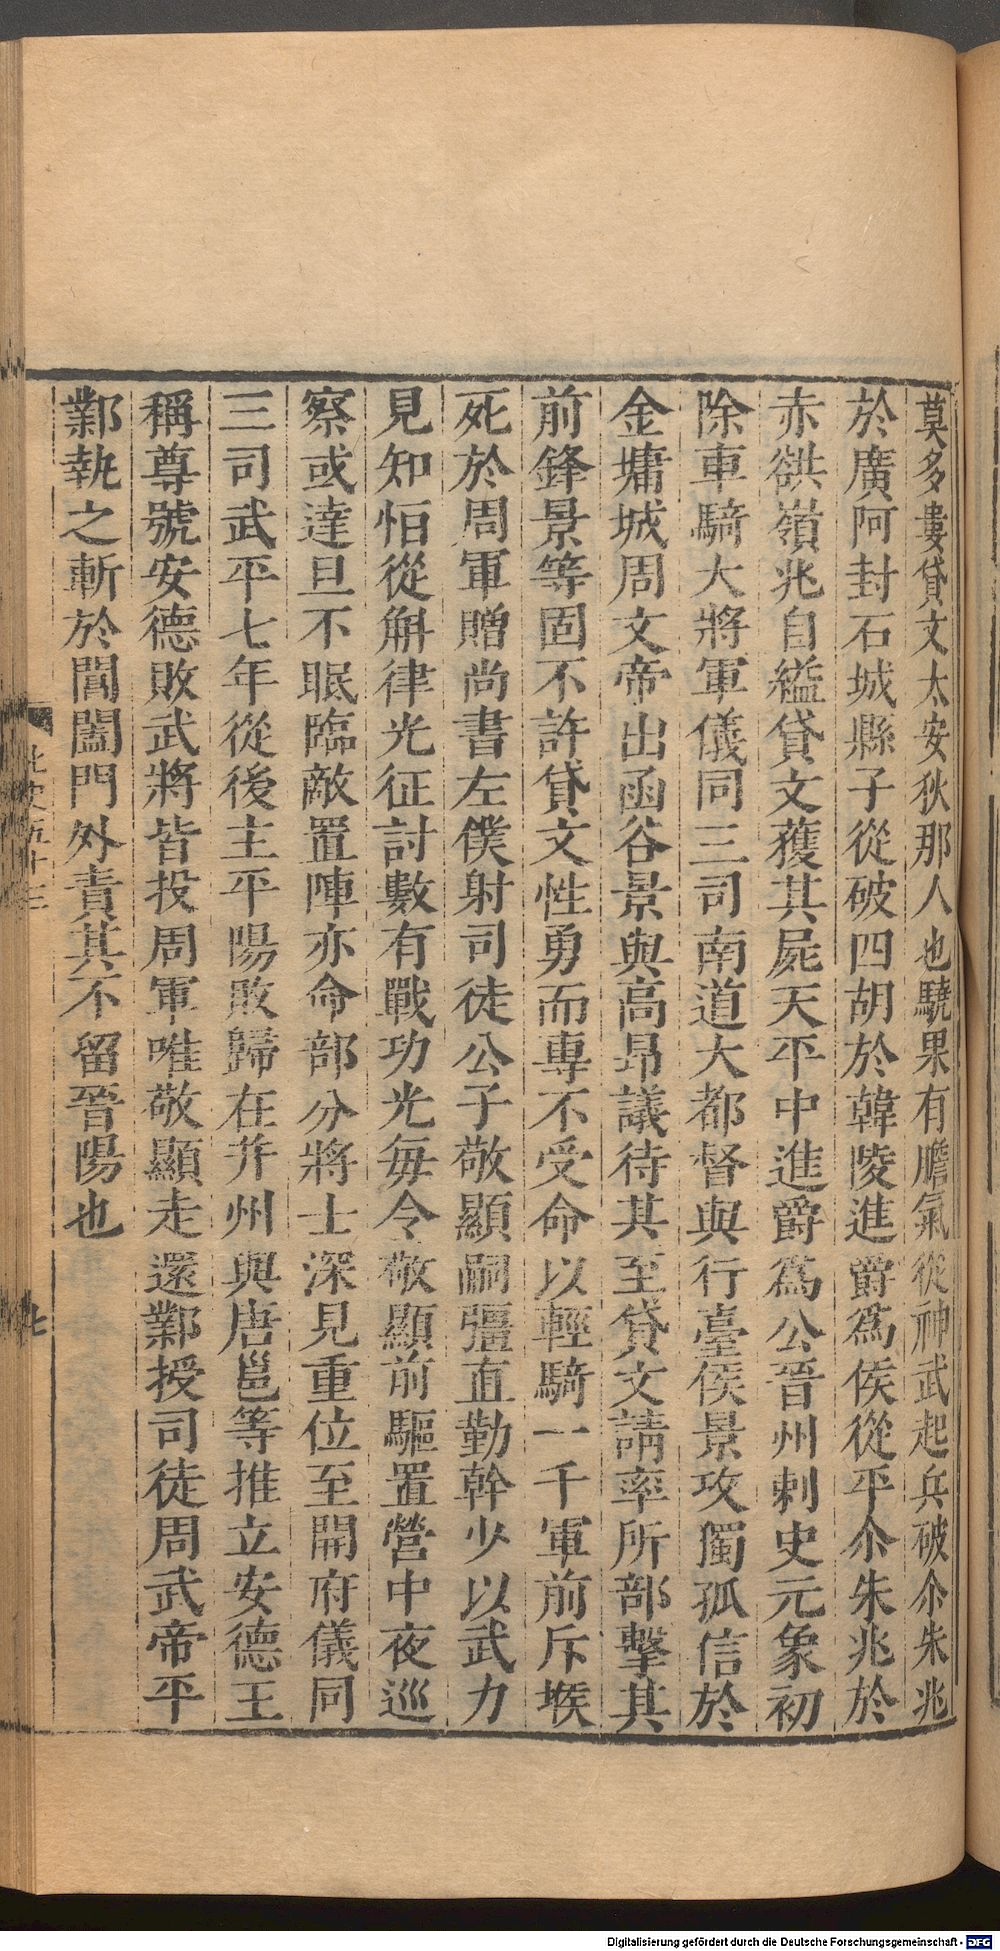 莫多婁貸文太安狄那人也驍果有膽氣從神武起兵破尒朱兆
於廣阿封石城縣子從破四胡於韓陵進爵爲侯從平尒朱兆於
赤䜪嶺兆自縊貸文獲其屍天平中進爵爲公晉州剌史元象初
除車騎大將軍儀同三司南道大都督與行臺侯景攻獨孤信於
金墉城周文帝出函谷景與高昂議待其至貸文請率所部擊其
前鋒景等固不許貸文性勇而專不受命以輕騎一千軍前斥堠
死於周軍贈尚書左僕射司徒公子敬顯嗣彊直勤幹少以武力
見知怕從斛律光征討數有戰功光每令敬顯前驅置營中夜巡
察或達旦不眠臨敵置陣亦命部分將士深見重位至開府儀同
三司武平七年從後主平陽敗歸在并州與唐邕等推立安德王
稱尊號安德敗武將皆投周軍唯敬顯走還鄴授司徒周武帝平
鄴執之斬於閶闔門外責其不留晉陽也
北史五十三
七
Digitalisierung gefördert durch die Deutsche Forschungsgemeinschaft - DFG